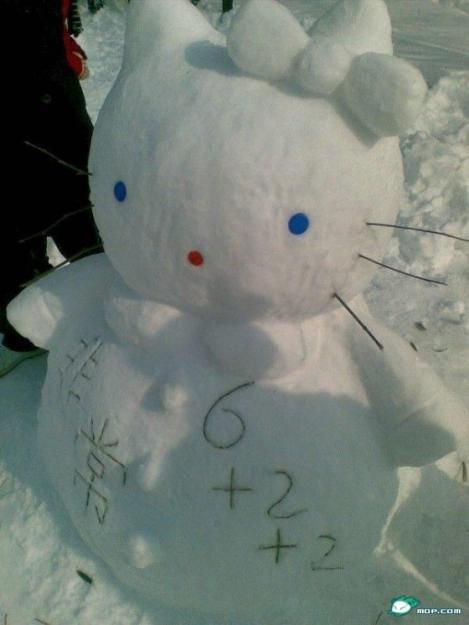 6
+2
+2
mop.com